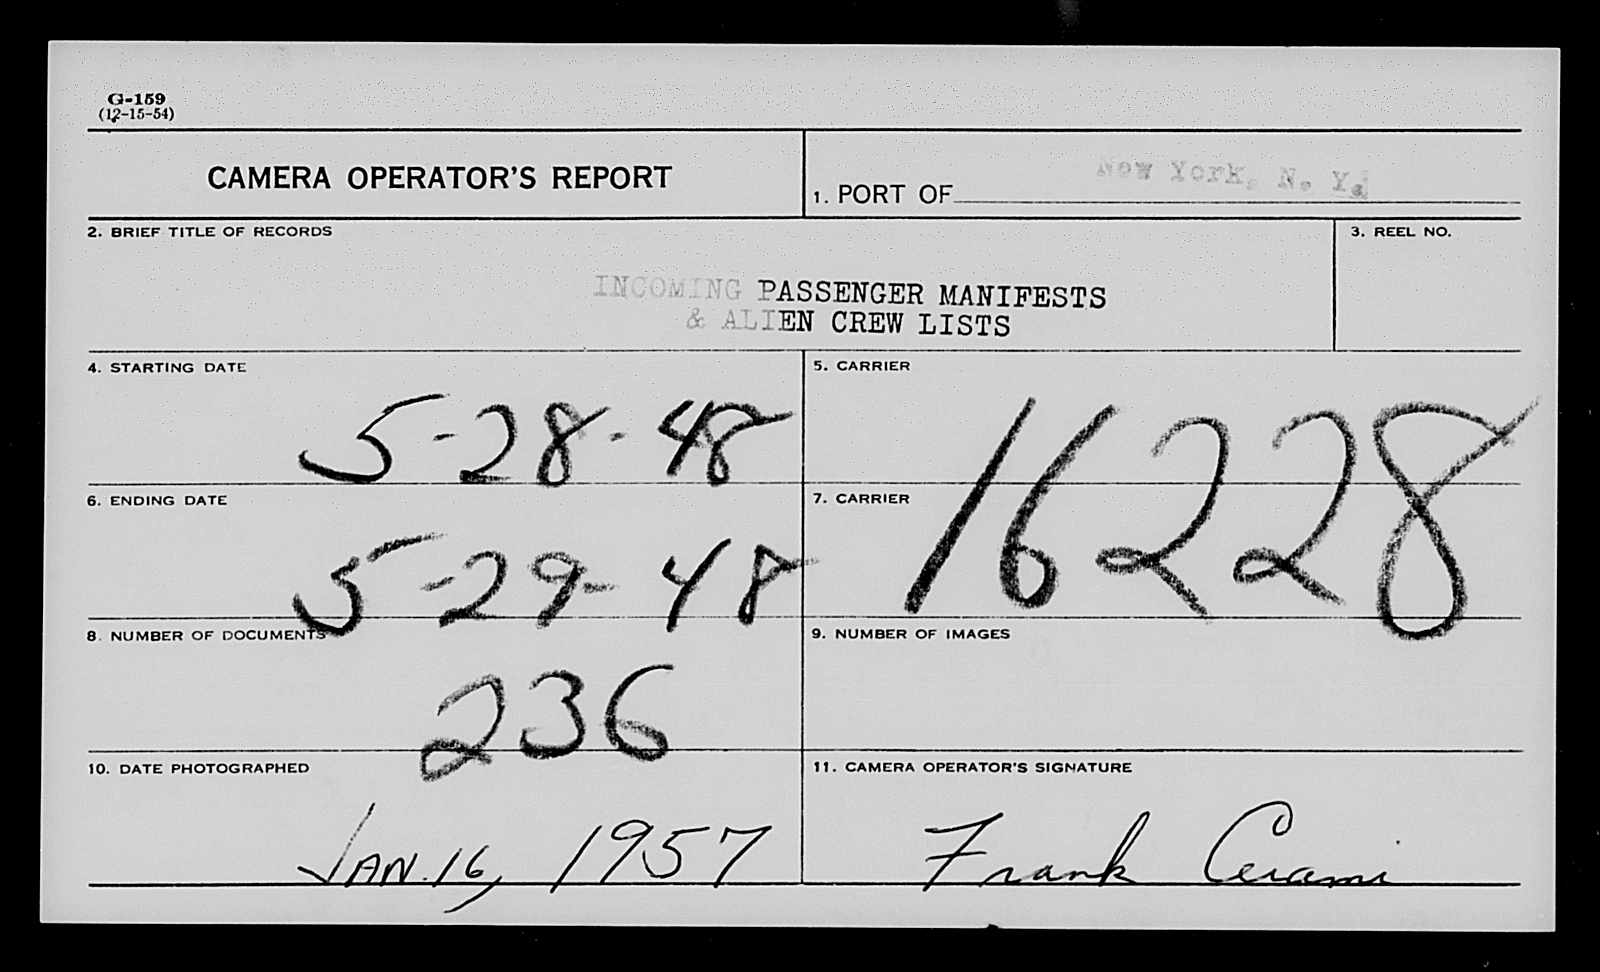 G-159
(12-15-54)
CAMERA OPERATOR'S REPORT
1. PORT OF New York, N. Y.
2. BRIEF TITLE OF RECORDS
3. REEL NO.
INCOMING PASSENGER MANIFESTS
& ALIEN CREW LISTS
4. STARTING DATE
5-28-48
5. CARRIER
16228
6. ENDING DATE
5-29-48
7. CARRIER
8. NUMBER OF DOCUMENTS
236
9. NUMBER OF IMAGES
10. DATE PHOTOGRAPHED
JAN. 16, 1957
11. CAMERA OPERATOR'S SIGNATURE
Frank Cerami